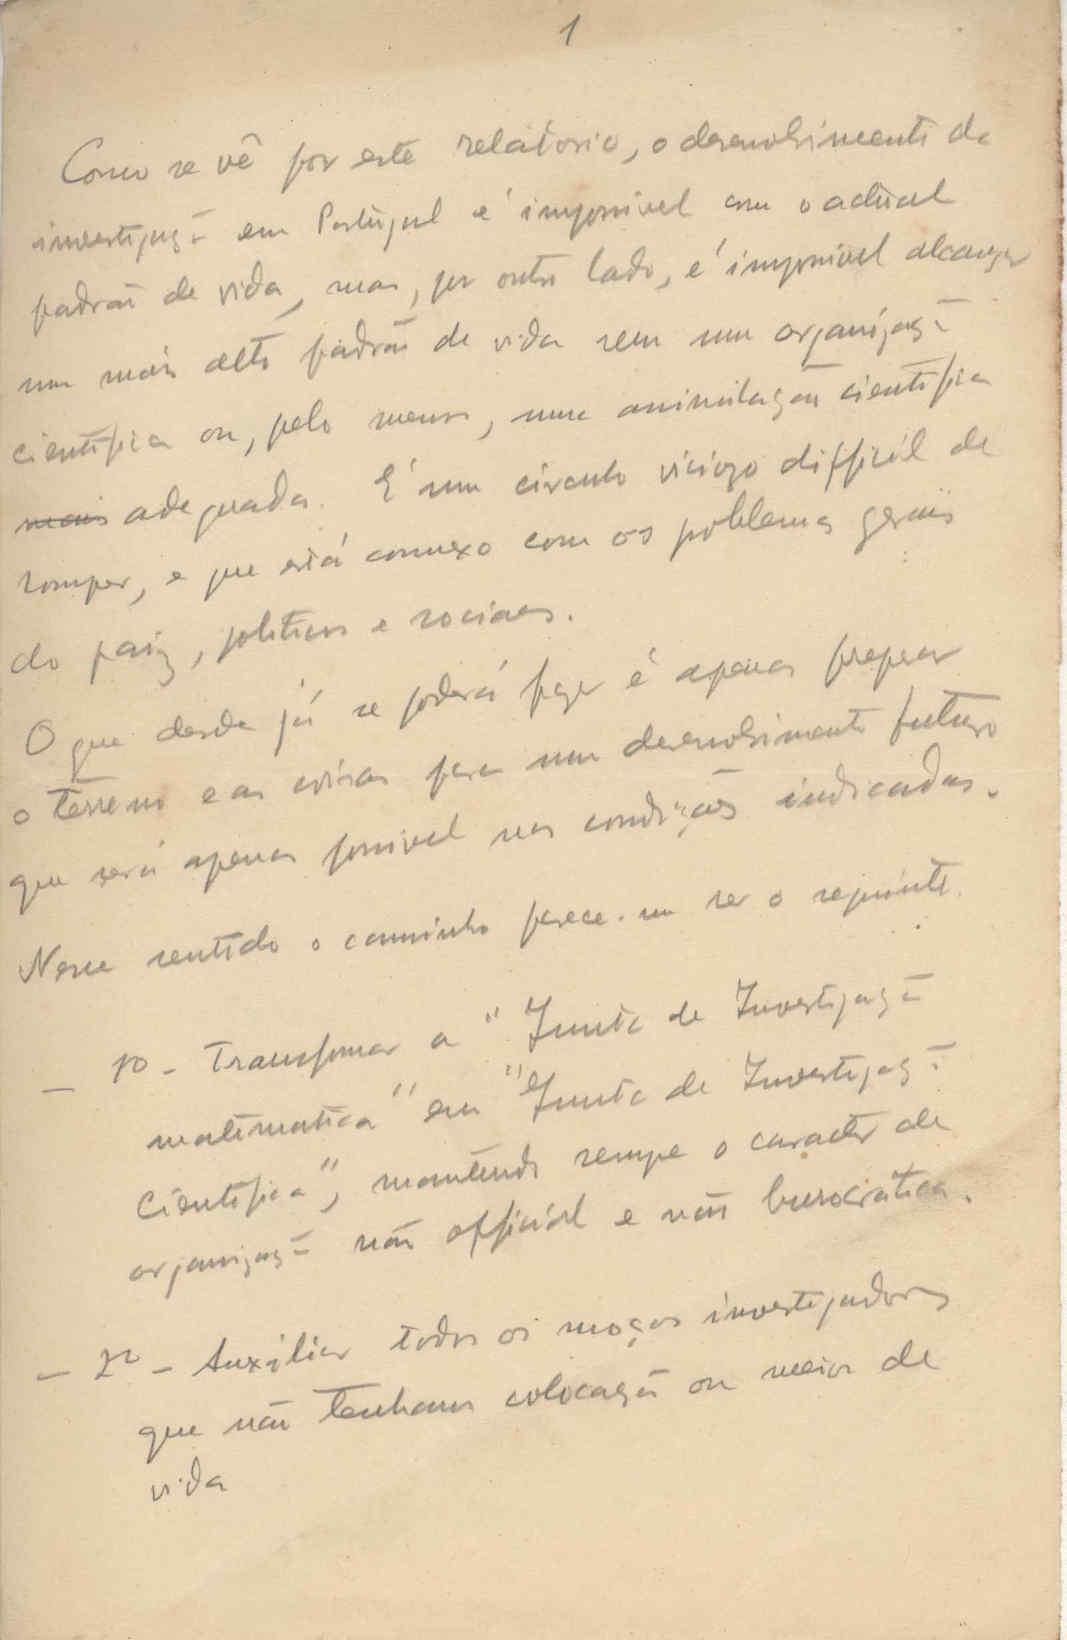 1
Como se vê por este relatório, o desenvolvimento da
investigação em Portugal é impossivel com o actual
padrão de vida, mas, por outro lado, é impossivel alcançar
um mais alto padrão de vida sem uma organização
cientifica ou, pelo menos, uma assimilação cientifica
mais adequada. É um circulo viciozo difficil de
romper, e que está connexo com os problemas geraiis
do paiz, politicos e sociaes.
O que desde já se poderá fazer é apenas preparar
o terreno e as coisas para um desenvolvimento futuro
que será apenas possivel nas condições indicadas.
Nesse sentido o caminho parece-me ser o seguinte.
- 1º - Transformar a "Junta de Investigação
matematica" em "Junta de Investigação
Cientifica", mantendo sempre o caracter de
organização não official e não burocratica.
- 2º - Auxiliar todos os moços investigadores
que não tenham colocação ou meios de
vida